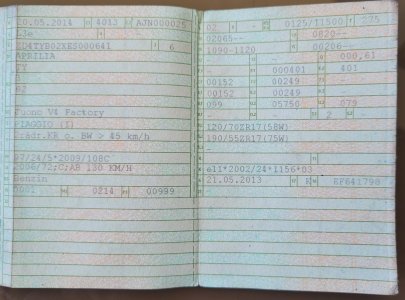 20.05.2014 4013 AJN000025
L3e -
ZD4TYB02XES000641 6
APRILIA
TY
02
Tuono V4 Factory
PIAGGIO (I)
Kradr.KR o. BW > 45 km/h
97/24/5*2009/108C
2006/72;C;AB 130 KM/H
Benzin
0001 0214 00999
02 0125/11500 225
02065-- 0820--
1090-1120 00206--
- 000,61
- 000401 401
00152 00249
00152 00249
099 05750 079
- 2 -
120/70ZR17(58W)
190/55ZR17(75W)
-
e11*2002/24*1156*03
21.05.2013 K EF641798